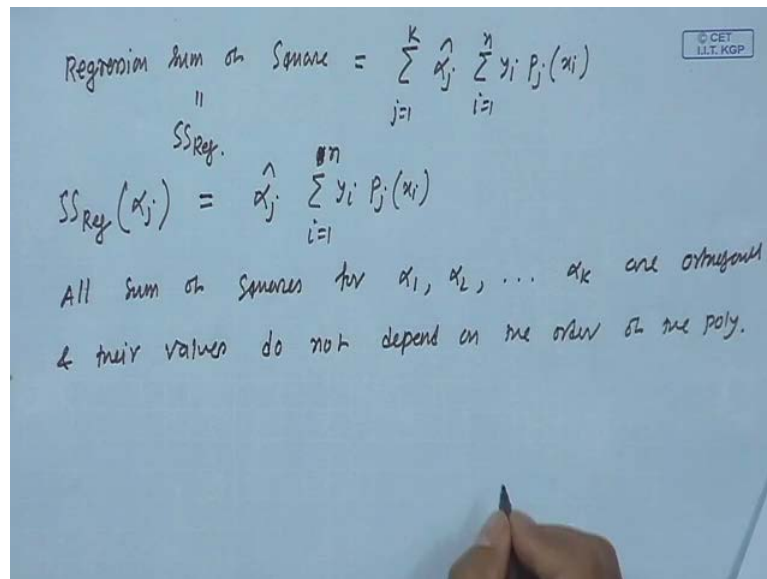 Regression sum of Square = ∑_{j=1}^{K} α̂_j ∑_{i=1}^{n} y_i P_j(x_i)
© CET
I.I.T. KGP
||
SS_Reg.
SS_Reg(α_j) = α̂_j ∑_{i=1}^{n} y_i P_j(x_i)
All sum of squares for α_1, α_2, ... α_K are orthogonal
& their values do not depend on the order of the poly.